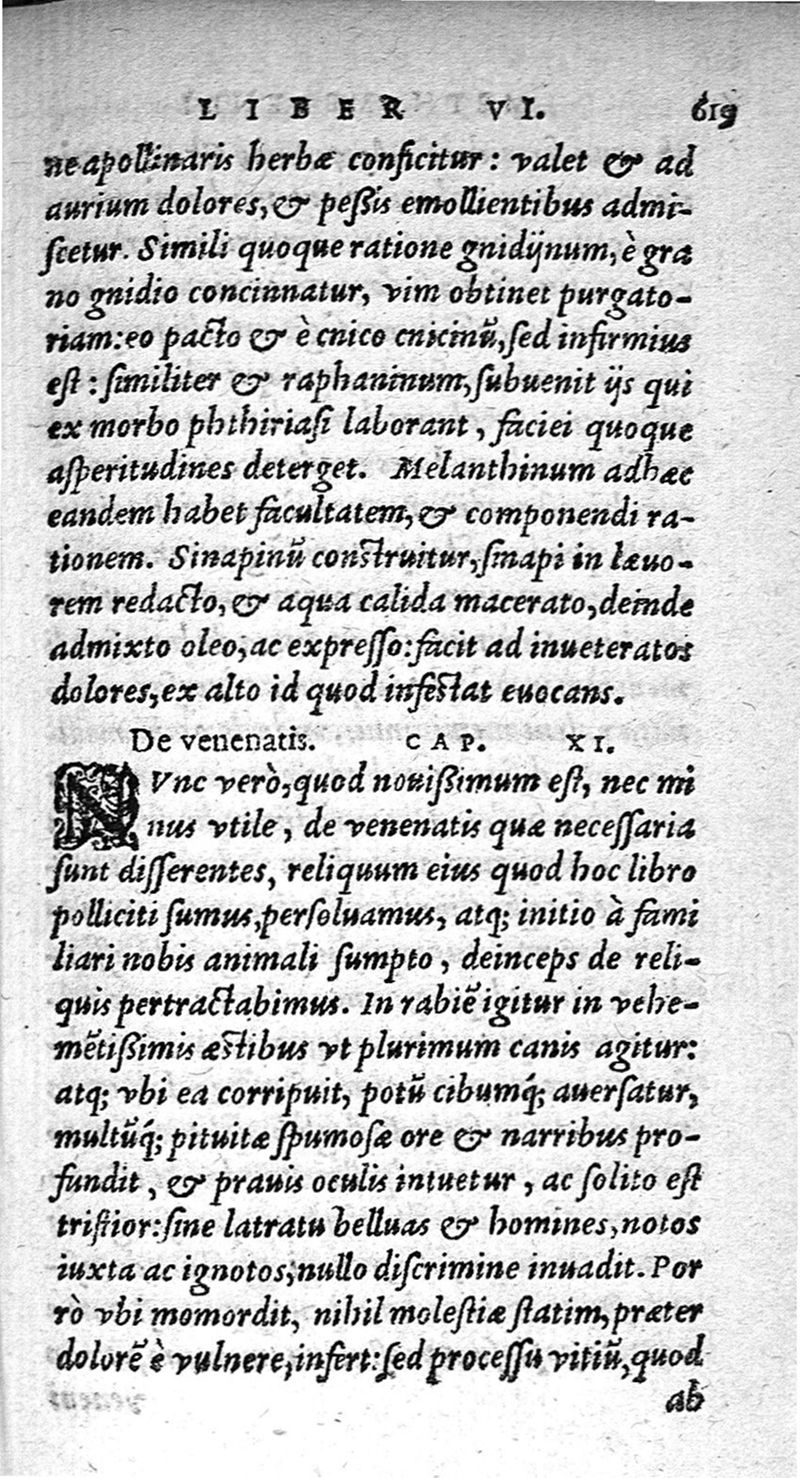 LIBER VI. 619
ne apollinaris herbæ conficitur: valet & ad
aurium dolores, & peßis emollientibus admi-
ſcetur. Simili quoque ratione gnidijnum, è gra
no gnidio concinnatur, vim obtinet purgato-
riam: eo pacto & è cnico cnicinū, ſed infirmius
eſt: ſimiliter & raphaninum, ſubuenit ijs qui
ex morbo phthiriaſi laborant, faciei quoque
aſperitudines deterget. Melanthinum adhæc
eandem habet facultatem, & componendi ra-
tionem. Sinapinū construitur, ſinapi in læuo-
rem redacto, & aqua calida macerato, deinde
admixto oleo, ac expreſſo: facit ad inueteratos
dolores, ex alto id quod infestat euocans.
De venenatis. CAP. XI.
NVnc verò, quod nouißimum eſt, nec mi
nus vtile, de venenatis quæ neceſſaria
ſunt diſſerentes, reliquum eius quod hoc libro
polliciti ſumus, perſoluamus, atq; initio à fami
liari nobis animali ſumpto, deinceps de reli-
quis pertractabimus. In rabiē igitur in vehe-
mētißimis æstibus vt plurimum canis agitur:
atq; vbi ea corripuit, potū cibumq́; auerſatur,
multūq́; pituitæ ſpumoſæ ore & narribus pro-
fundit, & prauis oculis intuetur, ac ſolito eſt
triſtior: ſine latratu belluas & homines, notos
iuxta ac ignotos, nullo diſcrimine inuadit. Por
rò vbi momordit, nihil moleſtiæ ſtatim, præter
dolorē è vulnere, infert: ſed proceſſu vitiū, quod
ab